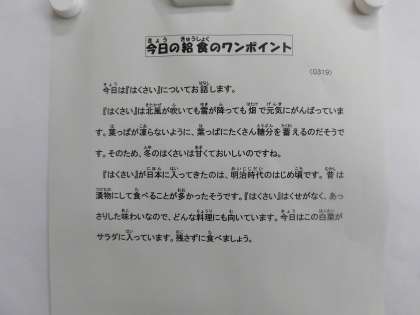 今日の給食のワンポイント
(0319)
今日は『はくさい』についてお話します。
『はくさい』は北風が吹いても雪が降っても畑で元気にがんばっていま
す。葉っぱが凍らないように、葉っぱにたくさん糖分を蓄えるのだそうで
す。そのため、冬のはくさいは甘くておいしいのですね。
『はくさい』が日本に入ってきたのは、明治時代のはじめ頃です。昔は
漬物にして食べることが多かったそうです。『はくさい』はくせがなく、あっ
さりした味わいなので、どんな料理にも向いています。今日はこの白菜が
サラダに入っています。残さずに食べましょう。